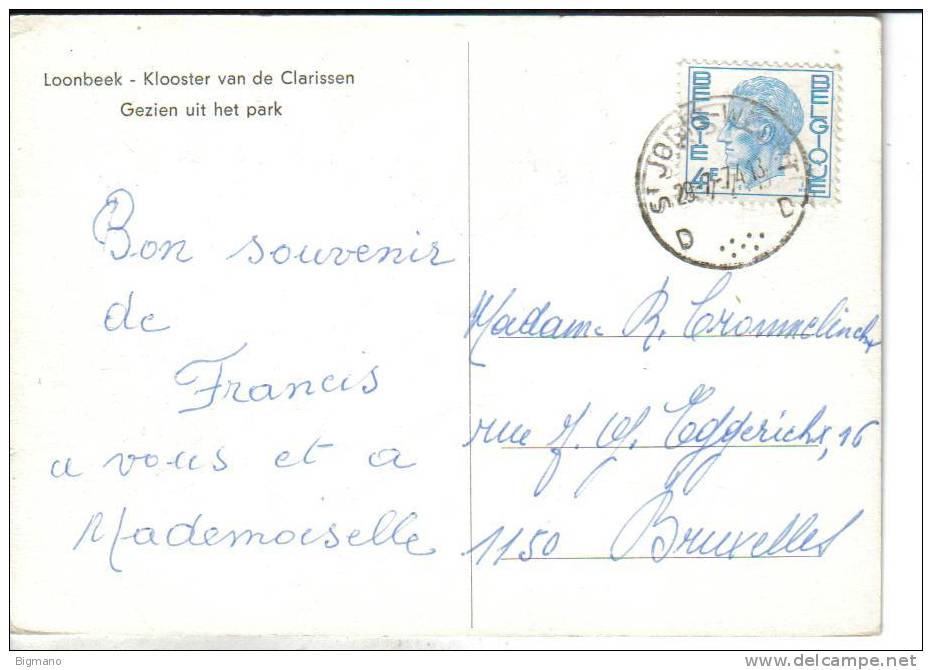 Loonbeek - Klooster van de Clarissen
Gezien uit het park
BELGIE 4F BELGIQUE
St JORIS-WEERT
29-7-74 13
D D
Bon souvenir
de
Francis
a vous et a
Mademoiselle
Madame R. Crommelinckx
rue J. G. Eggerickx, 16
1150 Bruxelles
Bigmano
www.delcampe.net